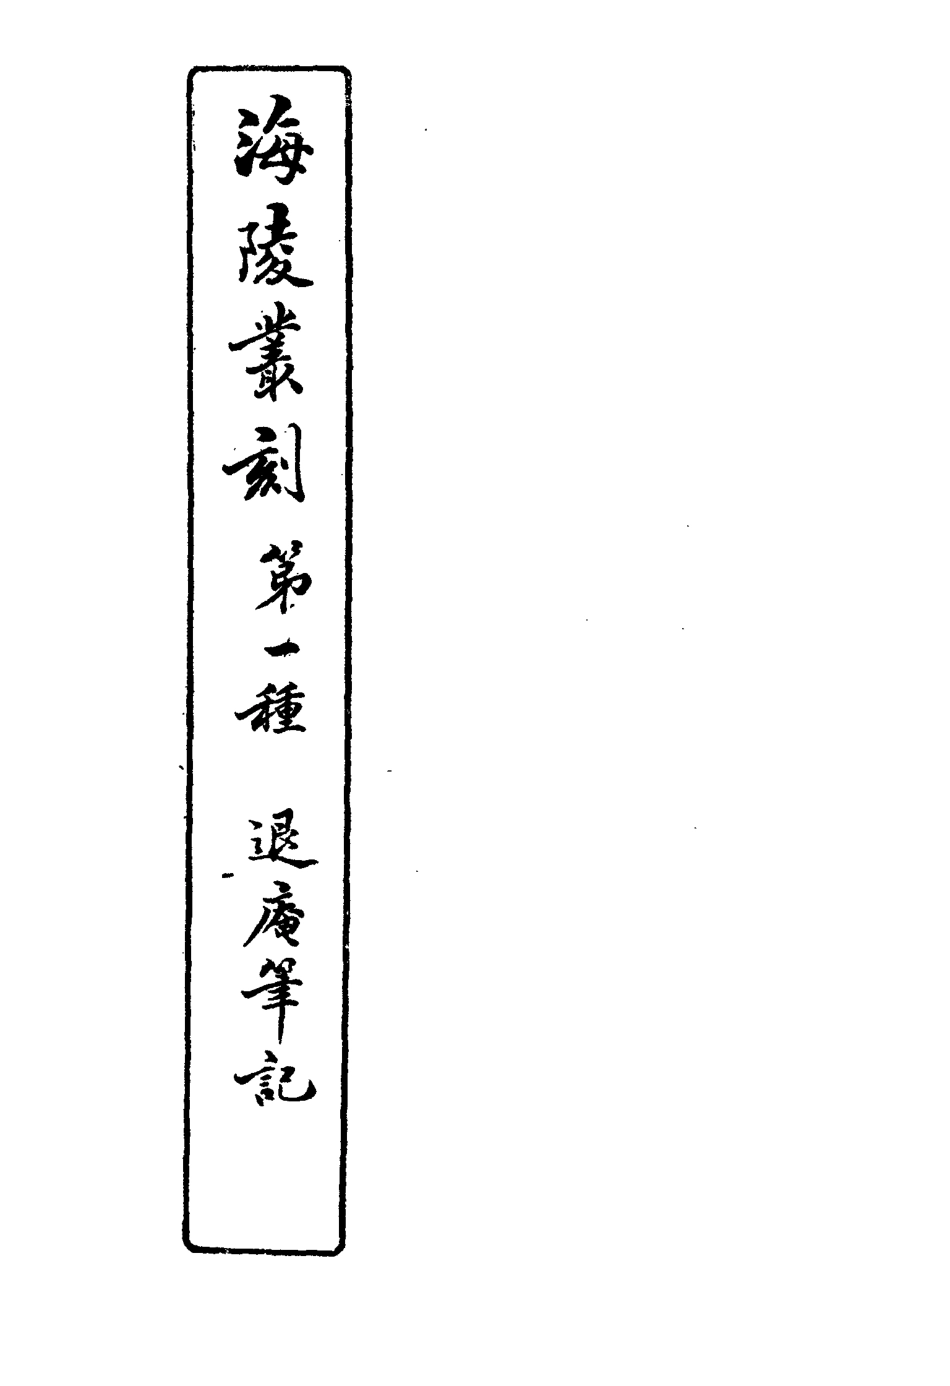 海陵叢刻第一種 退庵筆記